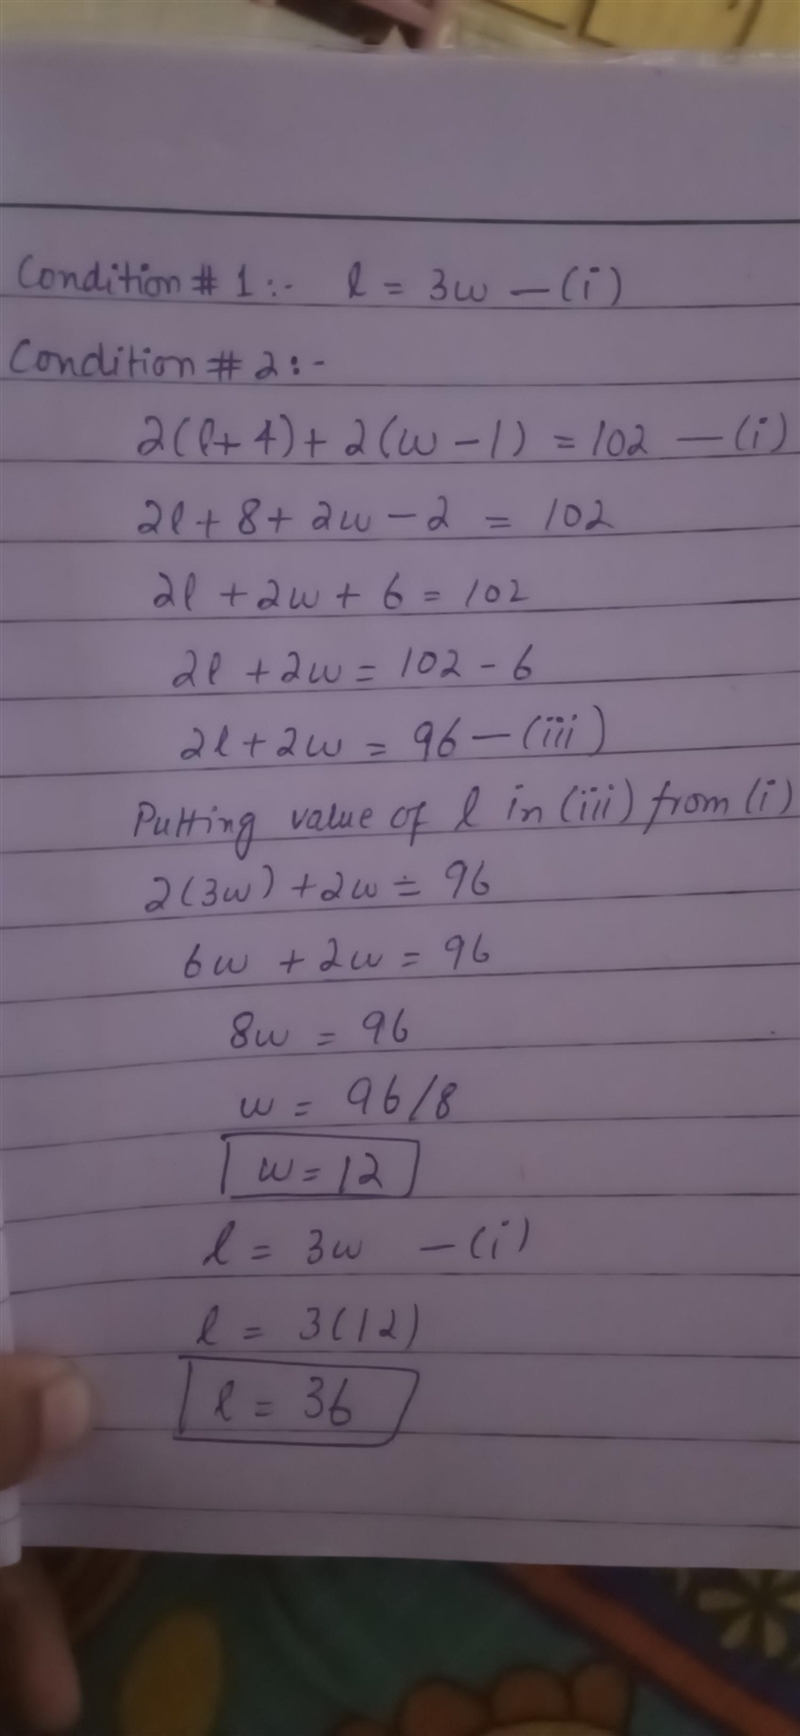 Condition # 1:- l = 3w — (i)
Condition # 2:-
2(l+4)+2(w-1) = 102 — (i)
2l+8+2w-2 = 102
2l+2w+6 = 102
2l+2w = 102-6
2l+2w = 96 — (iii)
Putting value of l in (iii) from (i)
2(3w)+2w = 96
6w+2w = 96
8w = 96
w = 96/8
w = 12
l = 3w — (i)
l = 3(12)
l = 36